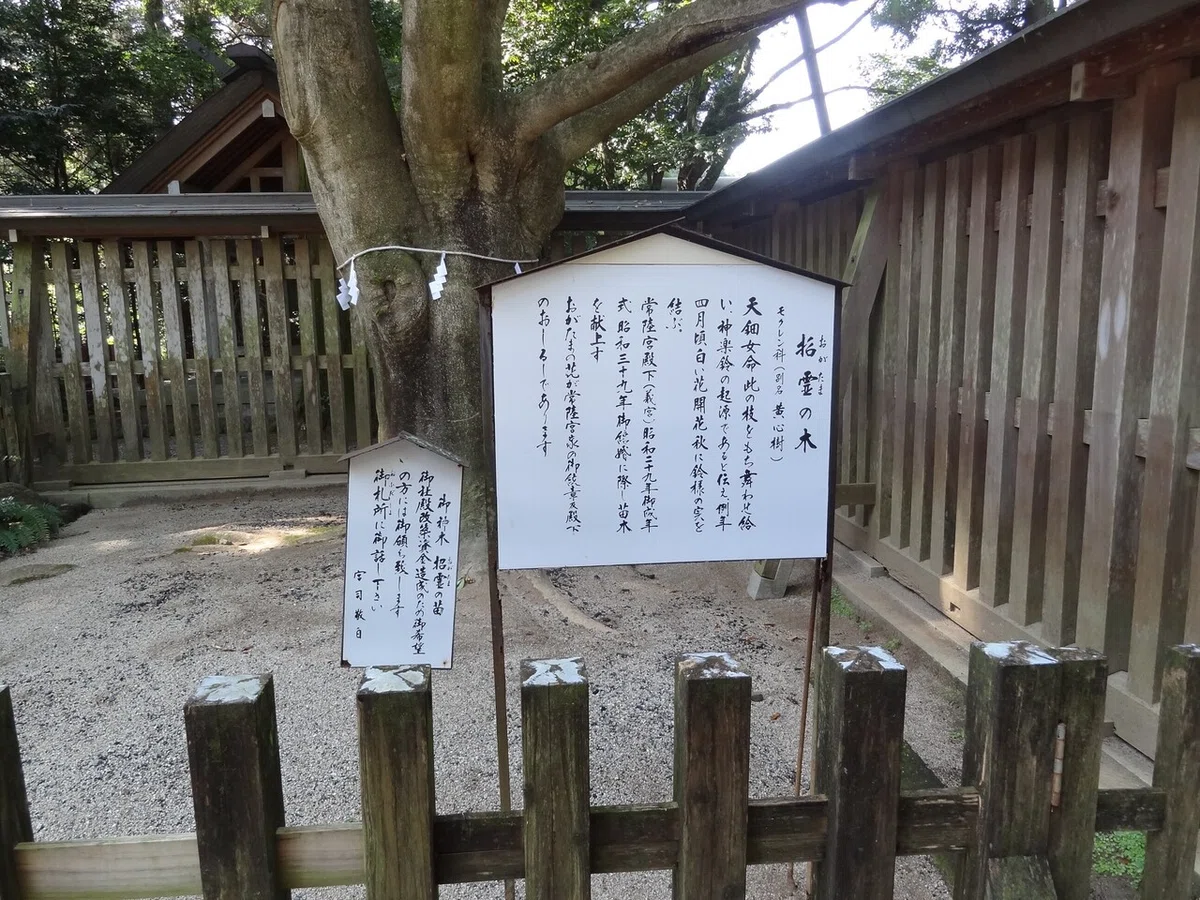 招霊の木
おがたま
モクレン科(別名 黄心樹)
天鈿女命此の枝をもち舞わせ給
い、神楽鈴の起源であると伝え、例年
四月頃白い花開花秋に鈴様の実を
結ぶ。
常陸宮殿下(義宮)昭和二十九年御成年
式 昭和三十九年御結婚に際し苗木
を献上す
おがたまの花が常陸宮家の御紋章妃殿下
のおしるしであります
御神木 招霊の苗
おがたま
御社殿改築資金造成のため御希望
の方には御頒ち致します
御札所に御話し下さい
宮司敬白